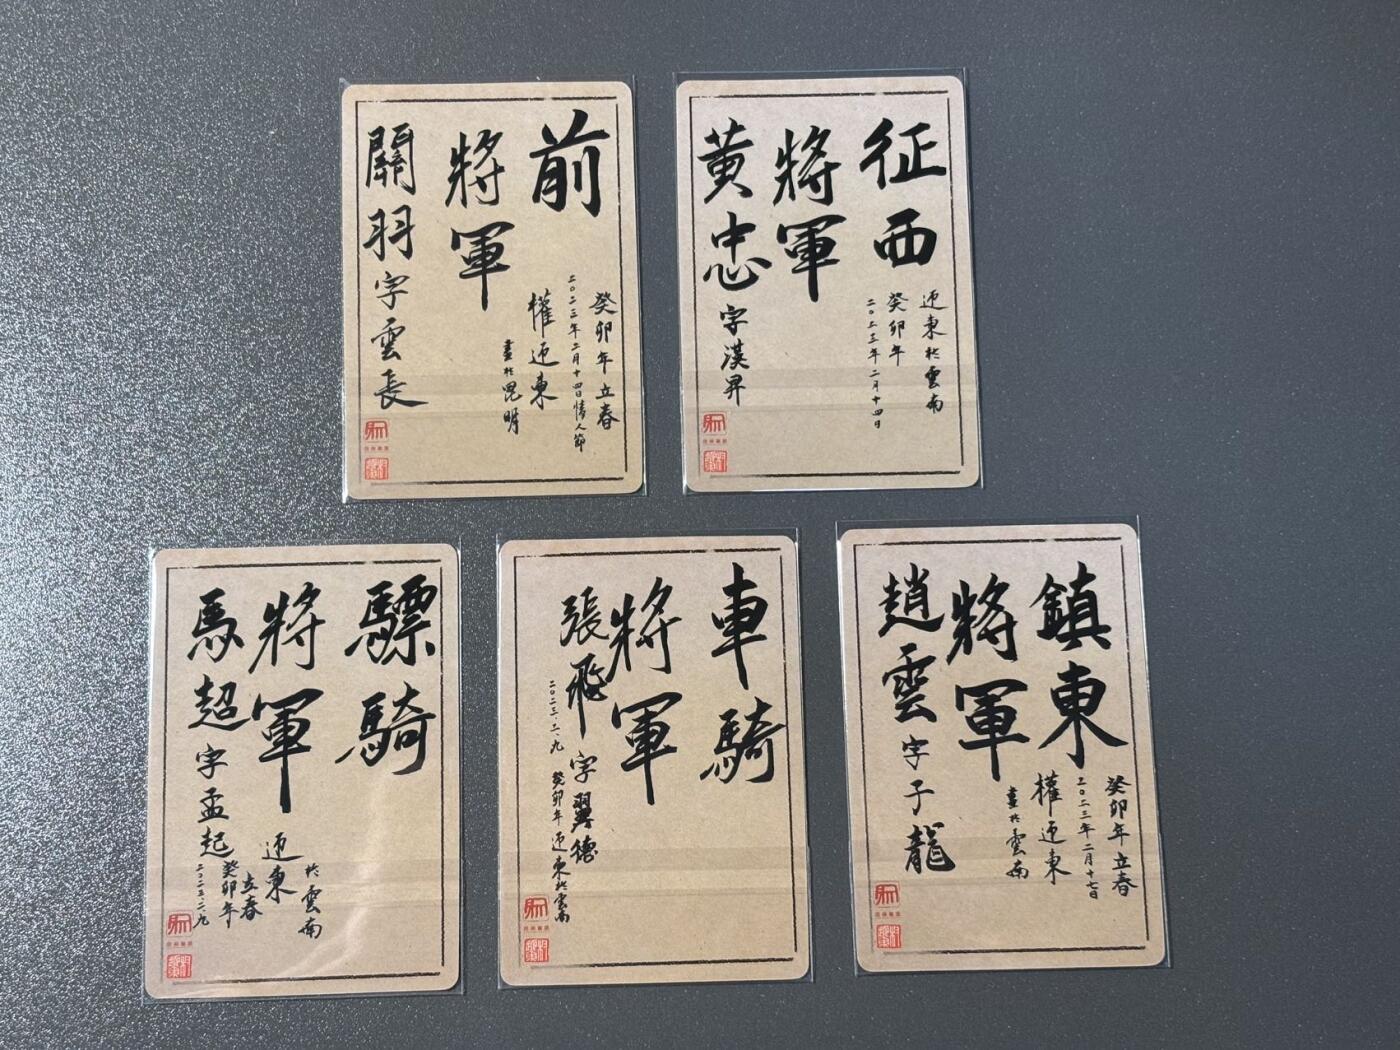 前
將軍
關羽字雲長
癸卯年立春
二〇二三年二月十四日情人節
權迎東
書於昆明
征西
將軍
黃忠字漢昇
迎東於雲南
癸卯年
二〇二三年二月十四日
驃騎
將軍
馬超字孟起
於雲南
迎東
立春
癸卯年
二〇二三.二.九
車騎
將軍
張飛字翼德
二〇二三.二.九
癸卯年迎東於雲南
鎮東
將軍
趙雲字子龍
癸卯年立春
二〇二三年二月十七日
權迎東
書於雲南